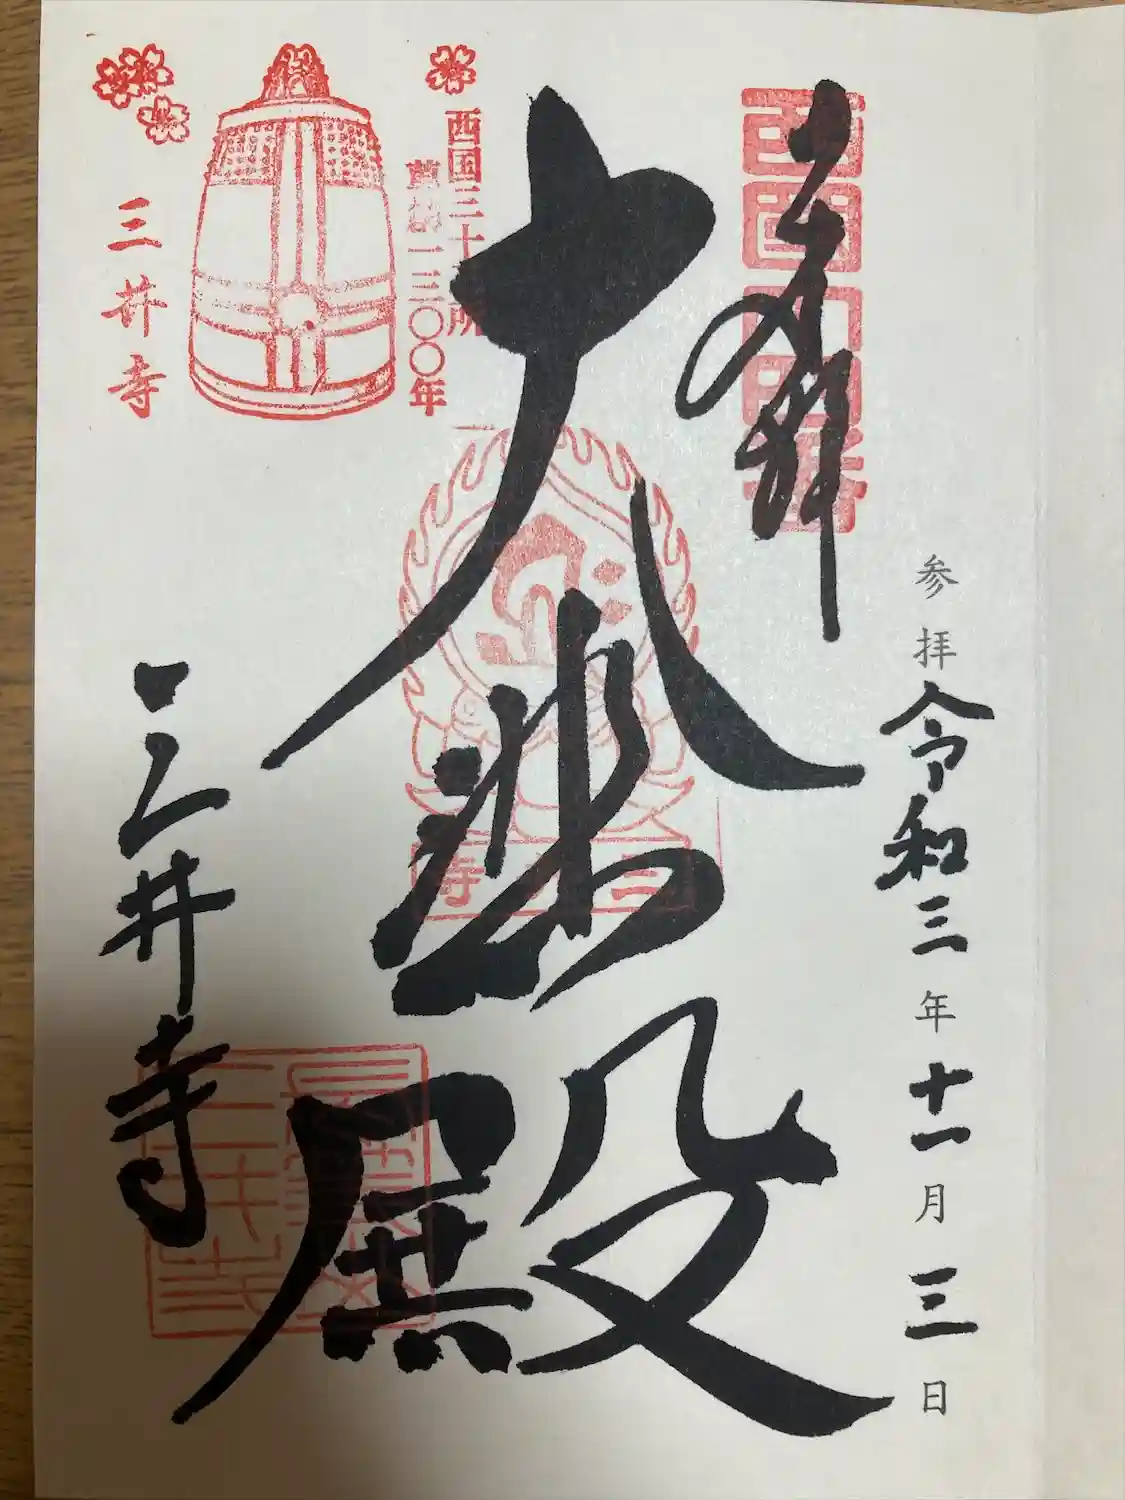 奉拝
西国十四番
参拝令和三年十一月三日
大悲殿
西国三十三所
草創一三〇〇年
三井寺
三井寺
三井寺